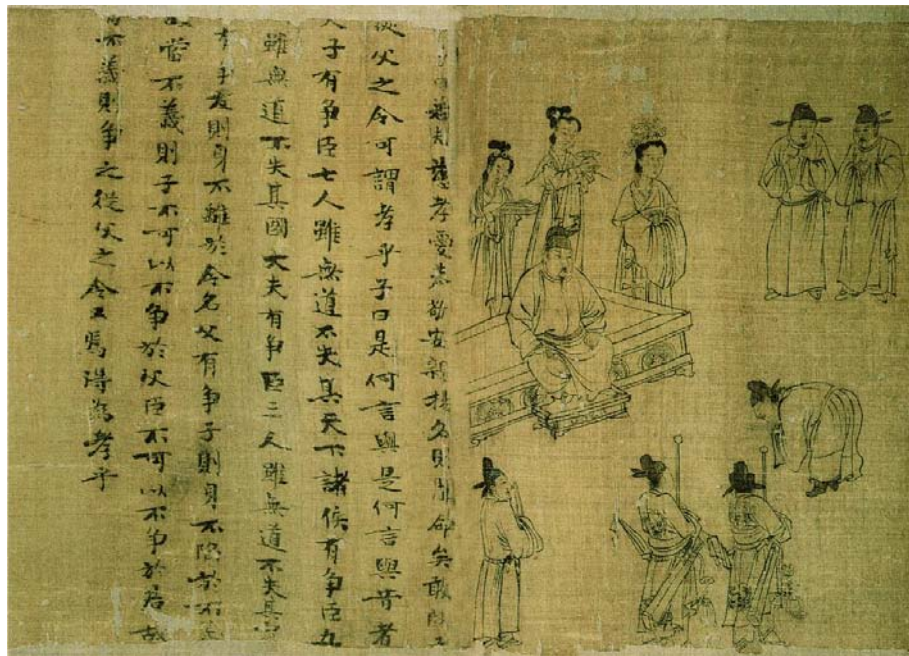 若夫慈孝愛恭敬安親揚名則聞命矣敢問子
從父之令可謂孝乎子曰是何言與是何言與昔者
天子有争臣七人雖無道不失其天下諸侯有争臣五
雖無道不失其國大夫有争臣三人雖無道不失其家
有争友則身不離於令名父有争子則身不陷於不義
當不義則子不可以不争於父臣不可以不争於君故
當不義則争之從父之令又焉得為孝乎